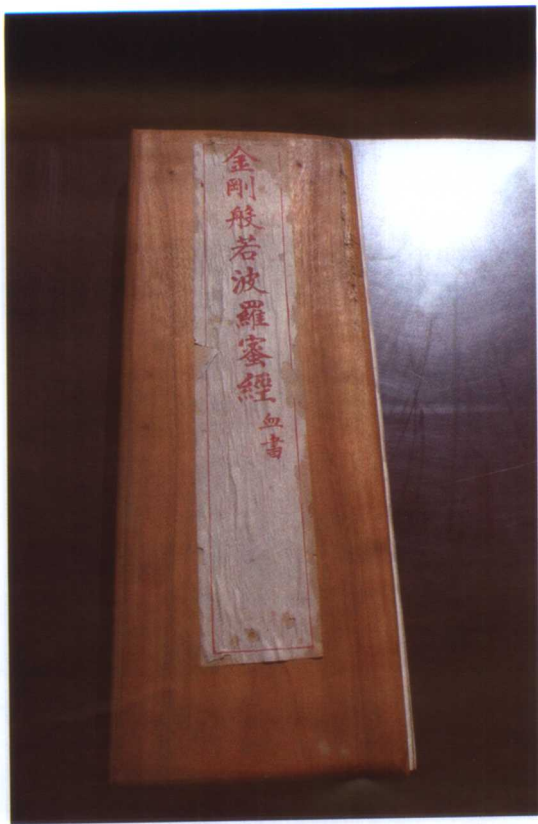 金剛般若波羅蜜經
血書